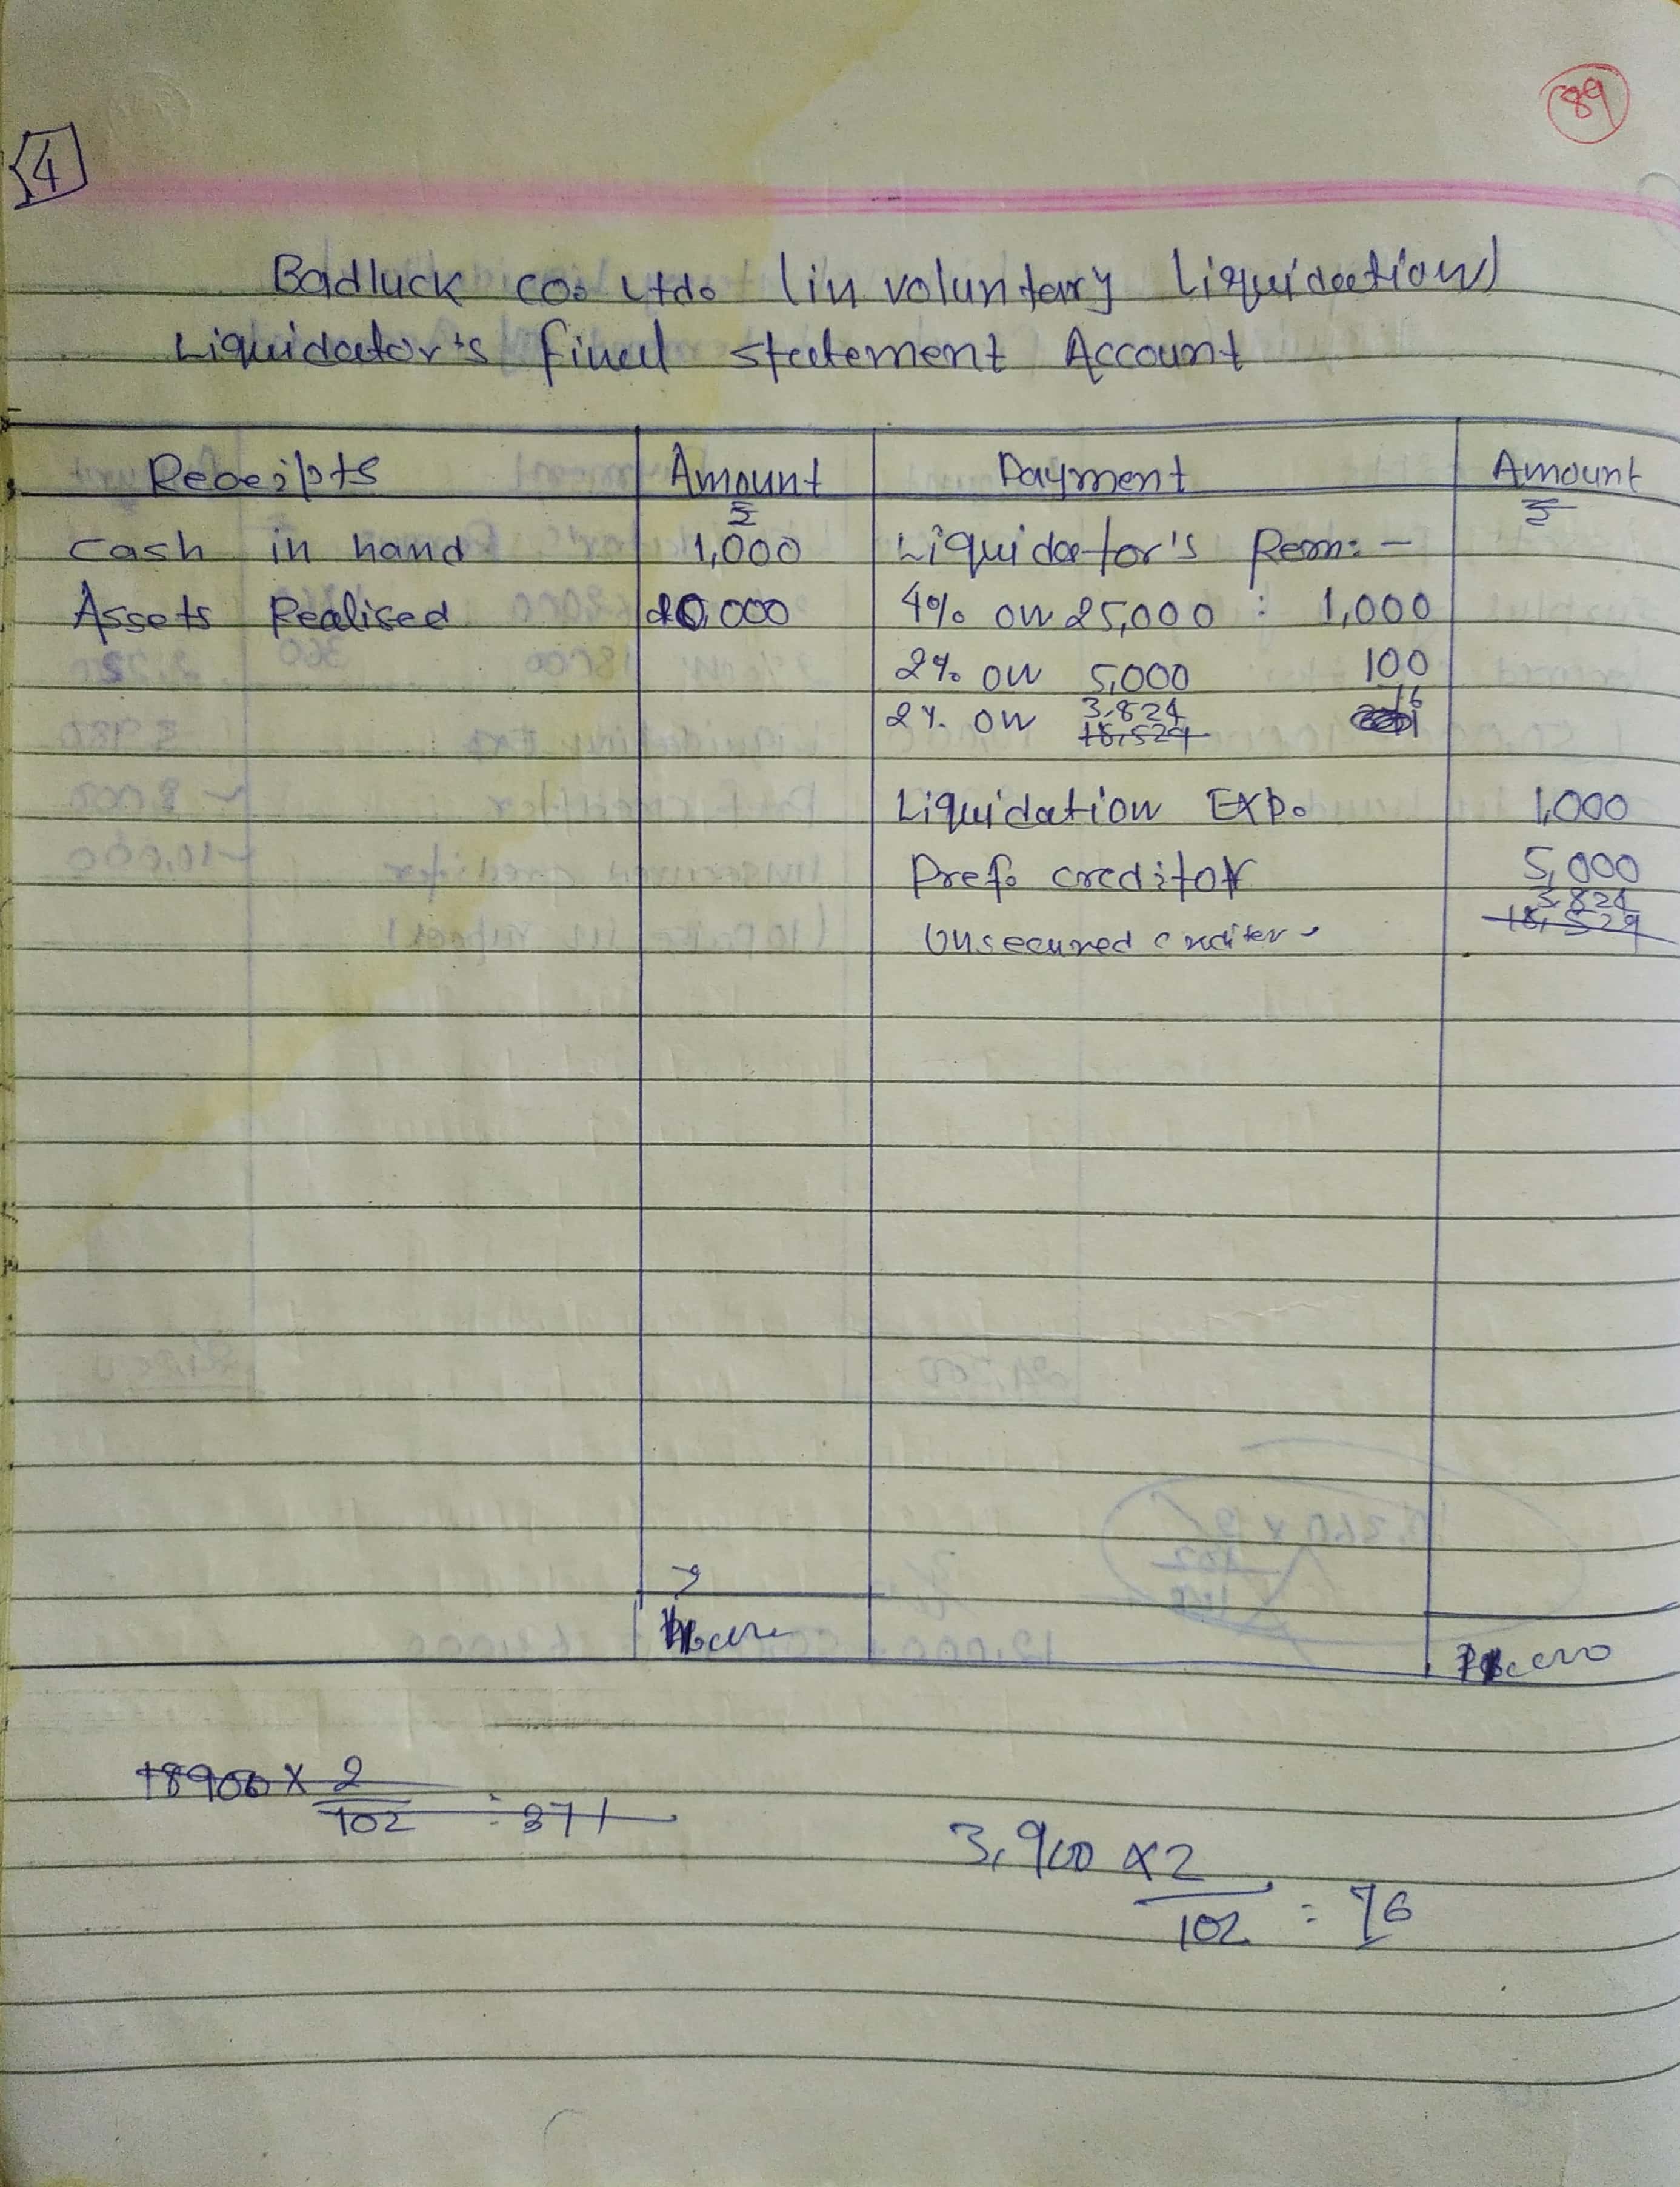 89
4
Badluck co. Ltd. (in voluntary Liquidation)
Liquidator's final statement Account
Receipts Amount Payment Amount
₹ ₹
Cash in hand 1,000 Liquidator's Rem: -
Assets Realised 10,000 4% on 25,000 : 1,000
2% on 5,000 100
2% on 3,824 76
18,529
Liquidation Exp. 1,000
Pref. creditor 5,000
Unsecured creditor 3,824
18,529
18900 x 2
102 = 371
3,900 x 2
102 = 76